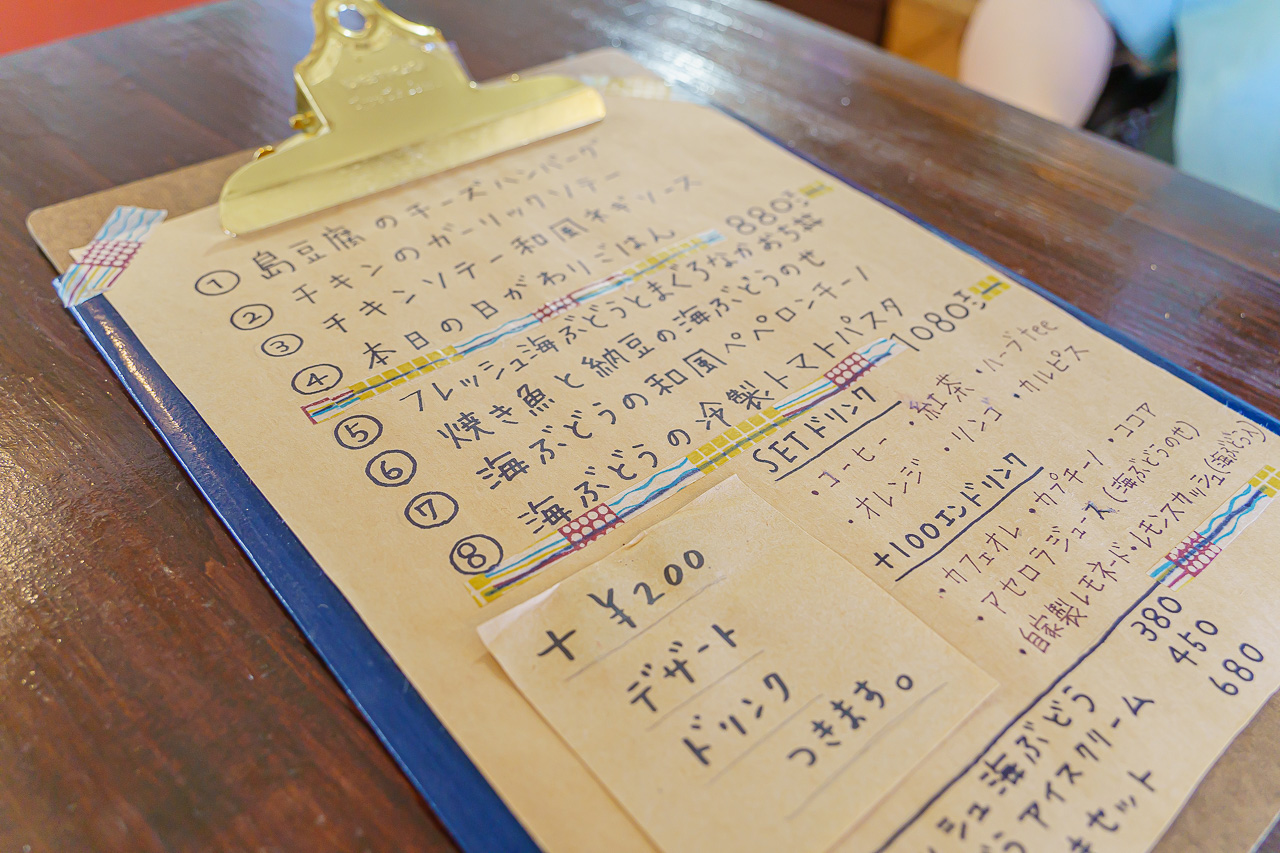 ① 島豆腐のチーズハンバーグ
② チキンのガーリックソテー
③ チキンソテー和風ネギソース
④ 本日の日がわりごはん
880
⑤ フレッシュ海ぶどうとまぐろなかおち丼
⑥ 焼き魚と納豆の海ぶどうのせ
⑦ 海ぶどうの和風ペペロンチーノ
⑧ 海ぶどうの冷製トマトパスタ
1080
SETドリンク
・コーヒー ・紅茶 ・ハーブtee
・オレンジ ・リンゴ ・カルピス
+100エンドリンク
・カフェオレ ・カプチーノ ・ココア
・アセロラジュース(海ぶどうのせ)
・自家製レモネード・レモンスカッシュ(海ぶどう入)
+ ¥200
デザート
ドリンク
つきます。
シュ海ぶどう 380
うアイスクリーム 450
きセット 680